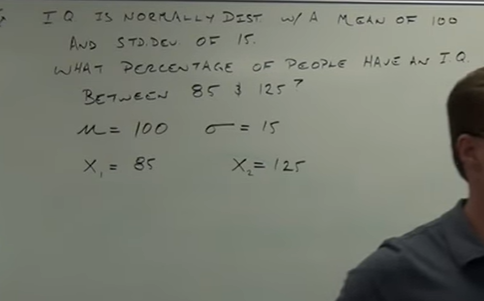 I Q IS NORMALLY DIST. W/ A MEAN OF 100
AND STD.DEV. OF 15.
WHAT PERCENTAGE OF PEOPLE HAVE AN I.Q.
BETWEEN 85 & 125?
μ = 100 σ = 15
X₁ = 85 X₂ = 125